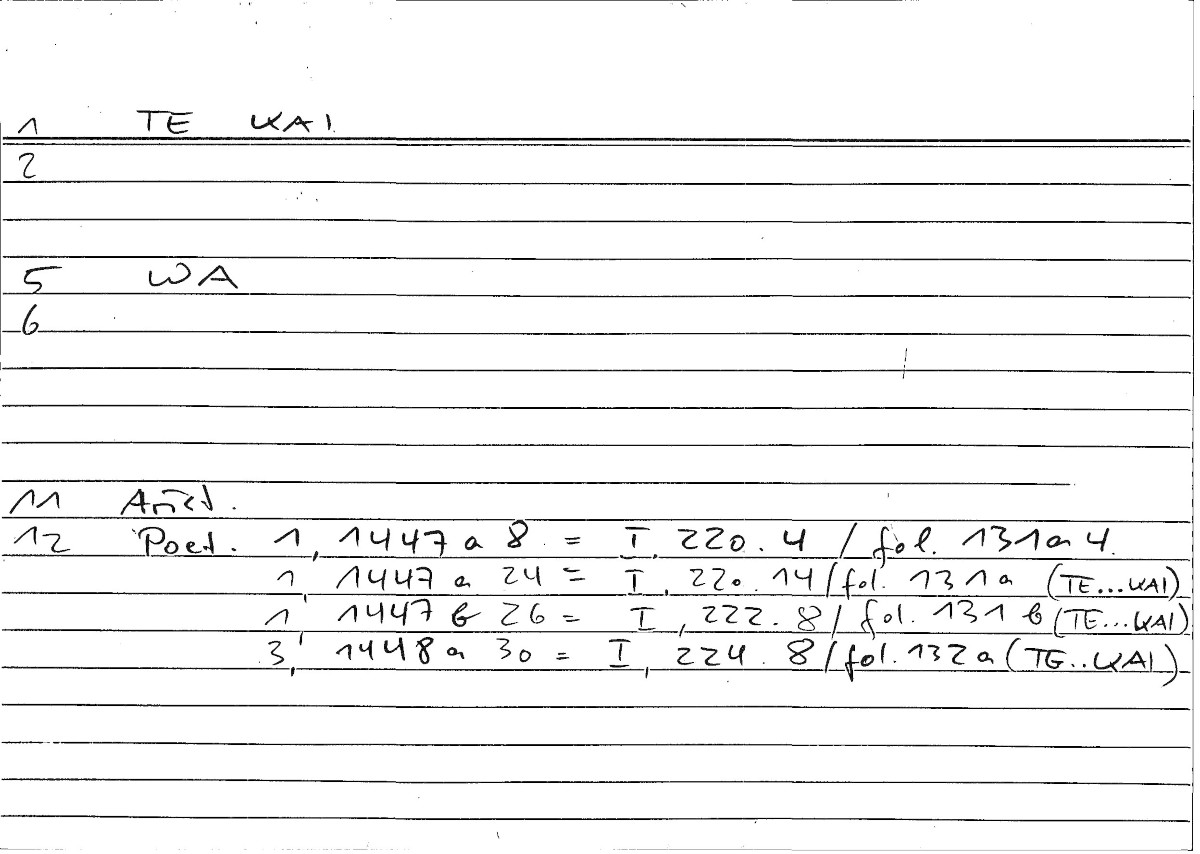 1 TE KAI
2
5 WA
6
11 Arist.
12 Poet. 1, 1447 a 8 = I, 220.4 / fol. 131a 4.
1, 1447 a 24 = I, 220.14 / fol. 131a (TE...KAI)
1, 1447 b 26 = I, 222.8 / fol. 131 b (TE...KAI)
3, 1448 a 30 = I, 224.8 / fol. 132 a (TE..KAI)